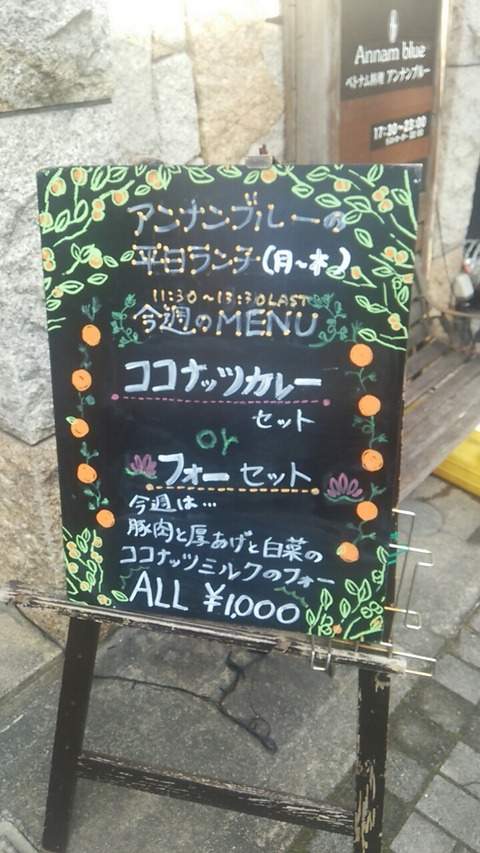 Annam blue
ベトナム料理 アンナンブルー
17:30~23:00
アンナンブルーの
平日ランチ(月~木)
11:30~13:30LAST
今週のMENU
ココナッツカレー
セット
or
フォーセット
今週は…
豚肉と厚あげと白菜の
ココナッツミルクのフォー
ALL ¥1,000